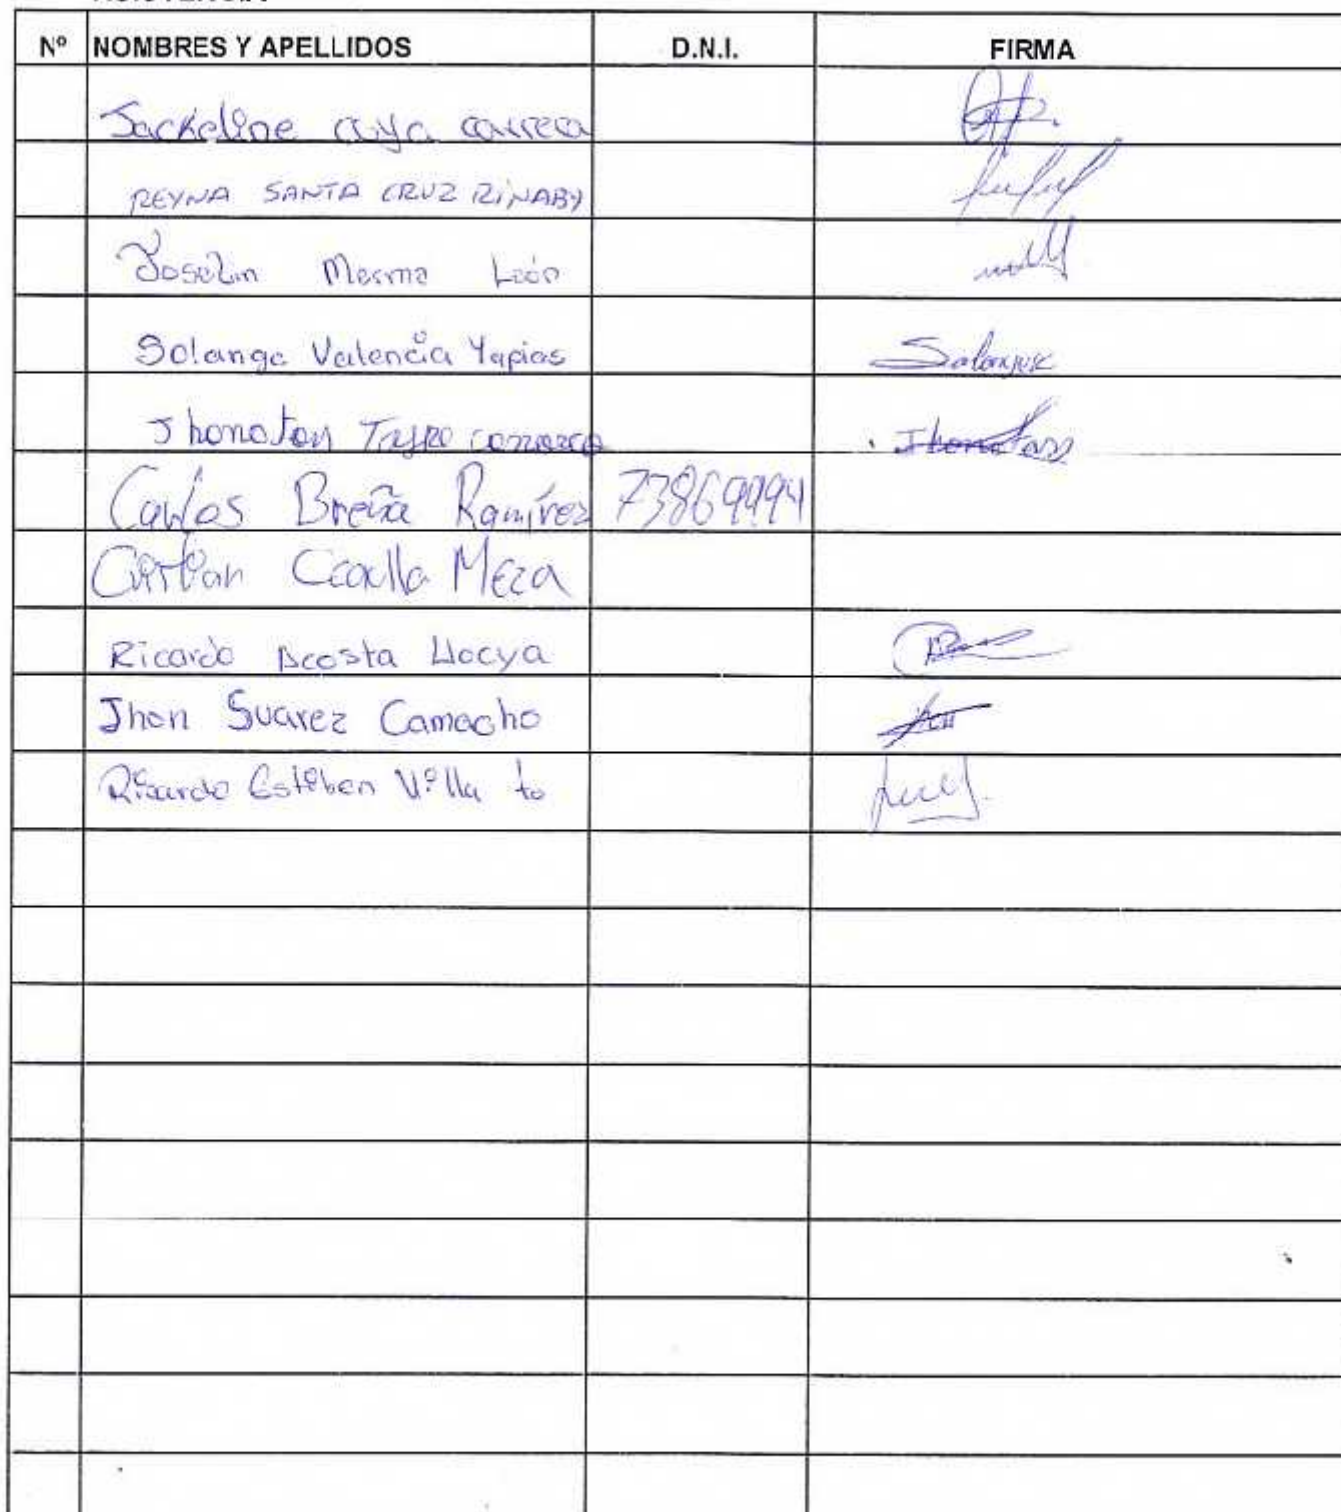 Nº NOMBRES Y APELLIDOS D.N.I. FIRMA
Jackeline cuya correa
REYNA SANTA CRUZ RINABY
Joselin Mesma León
Solange Valencia Yapias Solange
Jhonatan Jhonatan
Carlos Breña Ramírez 73869994
Ccoylla Meza
Ricardo Acosta Llocya
Jhon Suarez Camacho Jhon
Ricardo Estiben Villa to